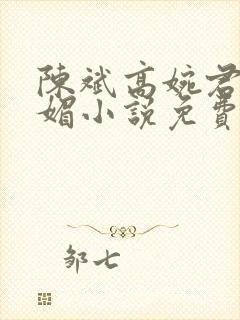 陳斌高婉君
媚小説免費
邹七